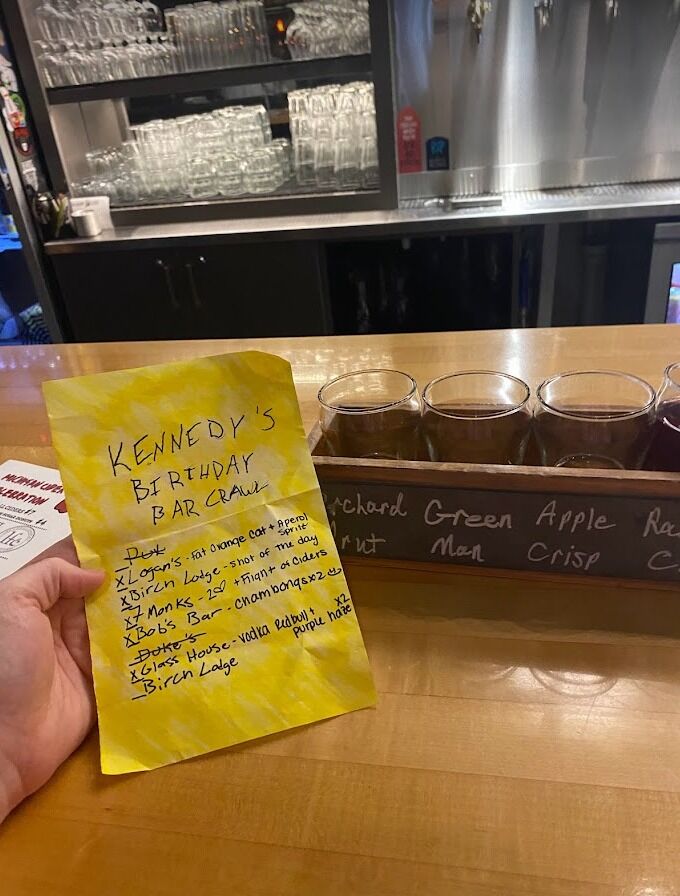 KENNEDY'S
BIRTHDAY
BAR CRAWL
X Logan's - Fat Orange Cat + Aperol Spritz
X Birch Lodge - Shot of the day
X 7 Monks - 2♡ + Flight of Ciders
X Bob's Bar - chambongs x2 ☺
Duke's
X Glass House - vodka Redbull + purple haze x2
_ Birch Lodge
Green Man
Apple Crisp
MICHIGAN